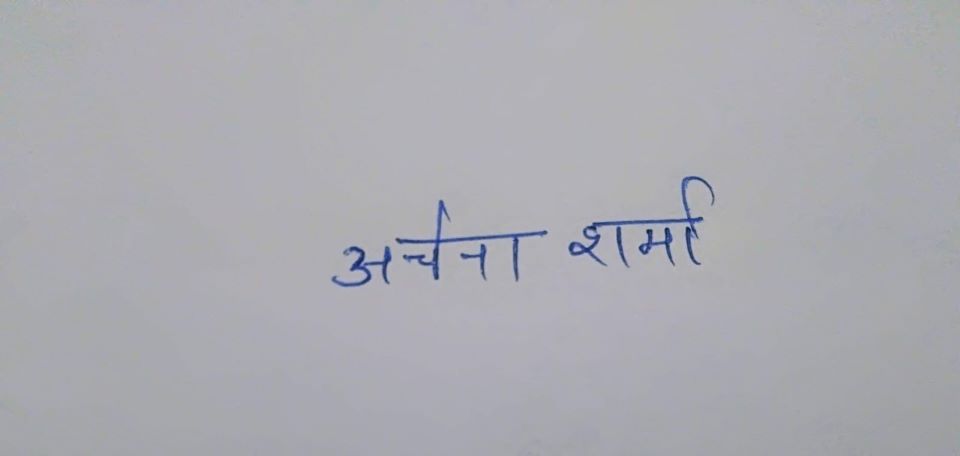 अर्चना शर्मा